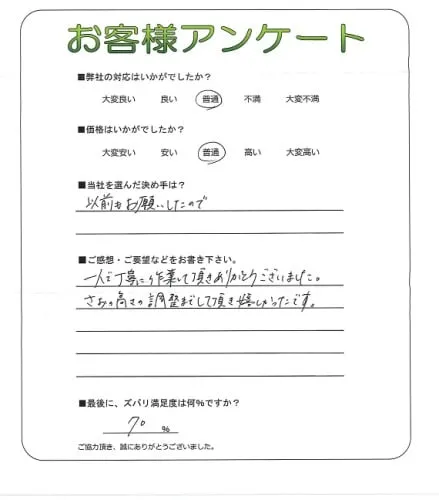 お客様アンケート
■弊社の対応はいかがでしたか？
大変良い 良い 普通 不満 大変不満
■価格はいかがでしたか？
大変安い 安い 普通 高い 大変高い
■当社を選んだ決め手は？
以前もお願いしたので
■ご感想・ご要望などをお書き下さい。
一人で丁寧に作業して頂きありがとうございました。
さおの高さの調整までして頂き嬉しかったです。
■最後に、ズバリ満足度は何%ですか？
70 %
ご協力頂き、誠にありがとうございました。